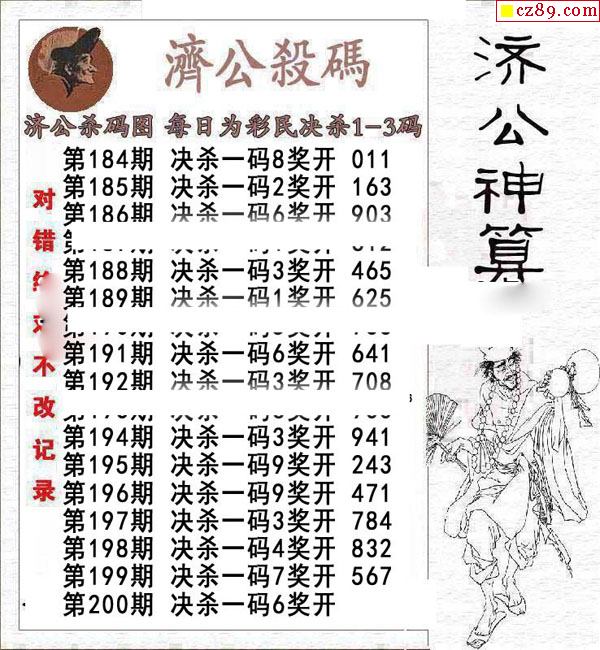 cz89.com
濟公殺碼
济公杀码图 每日为彩民决杀1-3码
第184期 决杀一码8奖开 011
第185期 决杀一码2奖开 163
第186期 决杀一码6奖开 903
第188期 决杀一码3奖开 465
第189期 决杀一码1奖开 625
第191期 决杀一码6奖开 641
第192期 决杀一码3奖开 708
第194期 决杀一码3奖开 941
第195期 决杀一码9奖开 243
第196期 决杀一码9奖开 471
第197期 决杀一码3奖开 784
第198期 决杀一码4奖开 832
第199期 决杀一码7奖开 567
第200期 决杀一码6奖开
对错
不改记录
济公神算